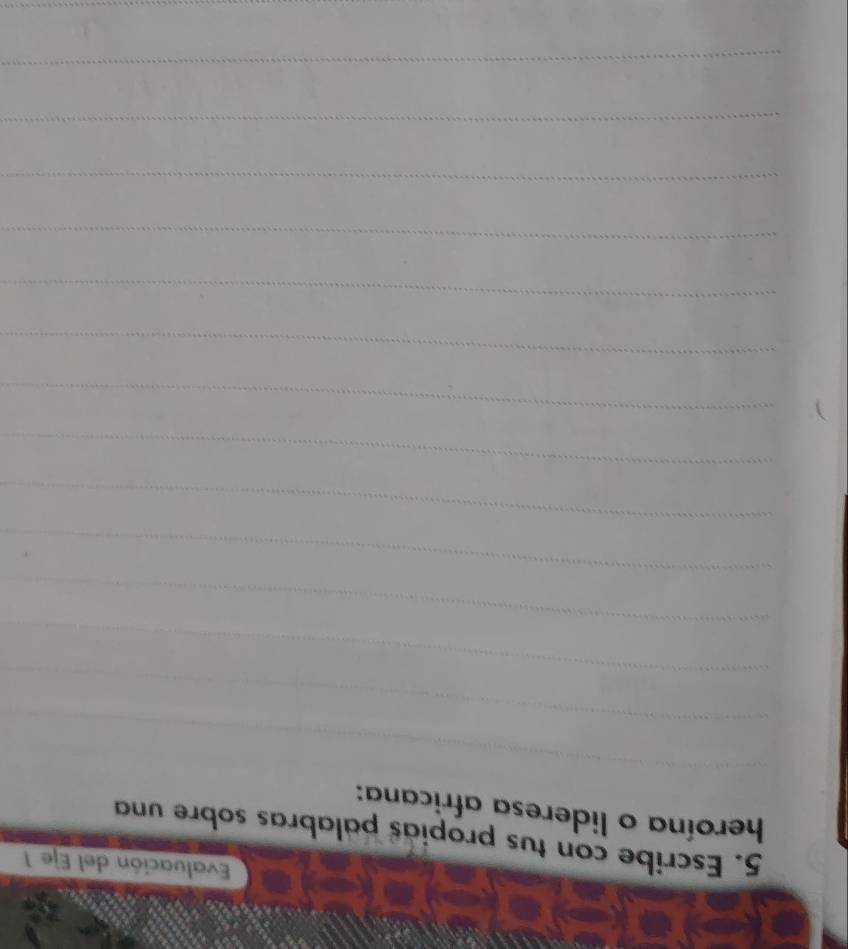 Evaluación del Eje 1
5. Escribe con tus propias palabras sobre una
heroína o lideresa africana: